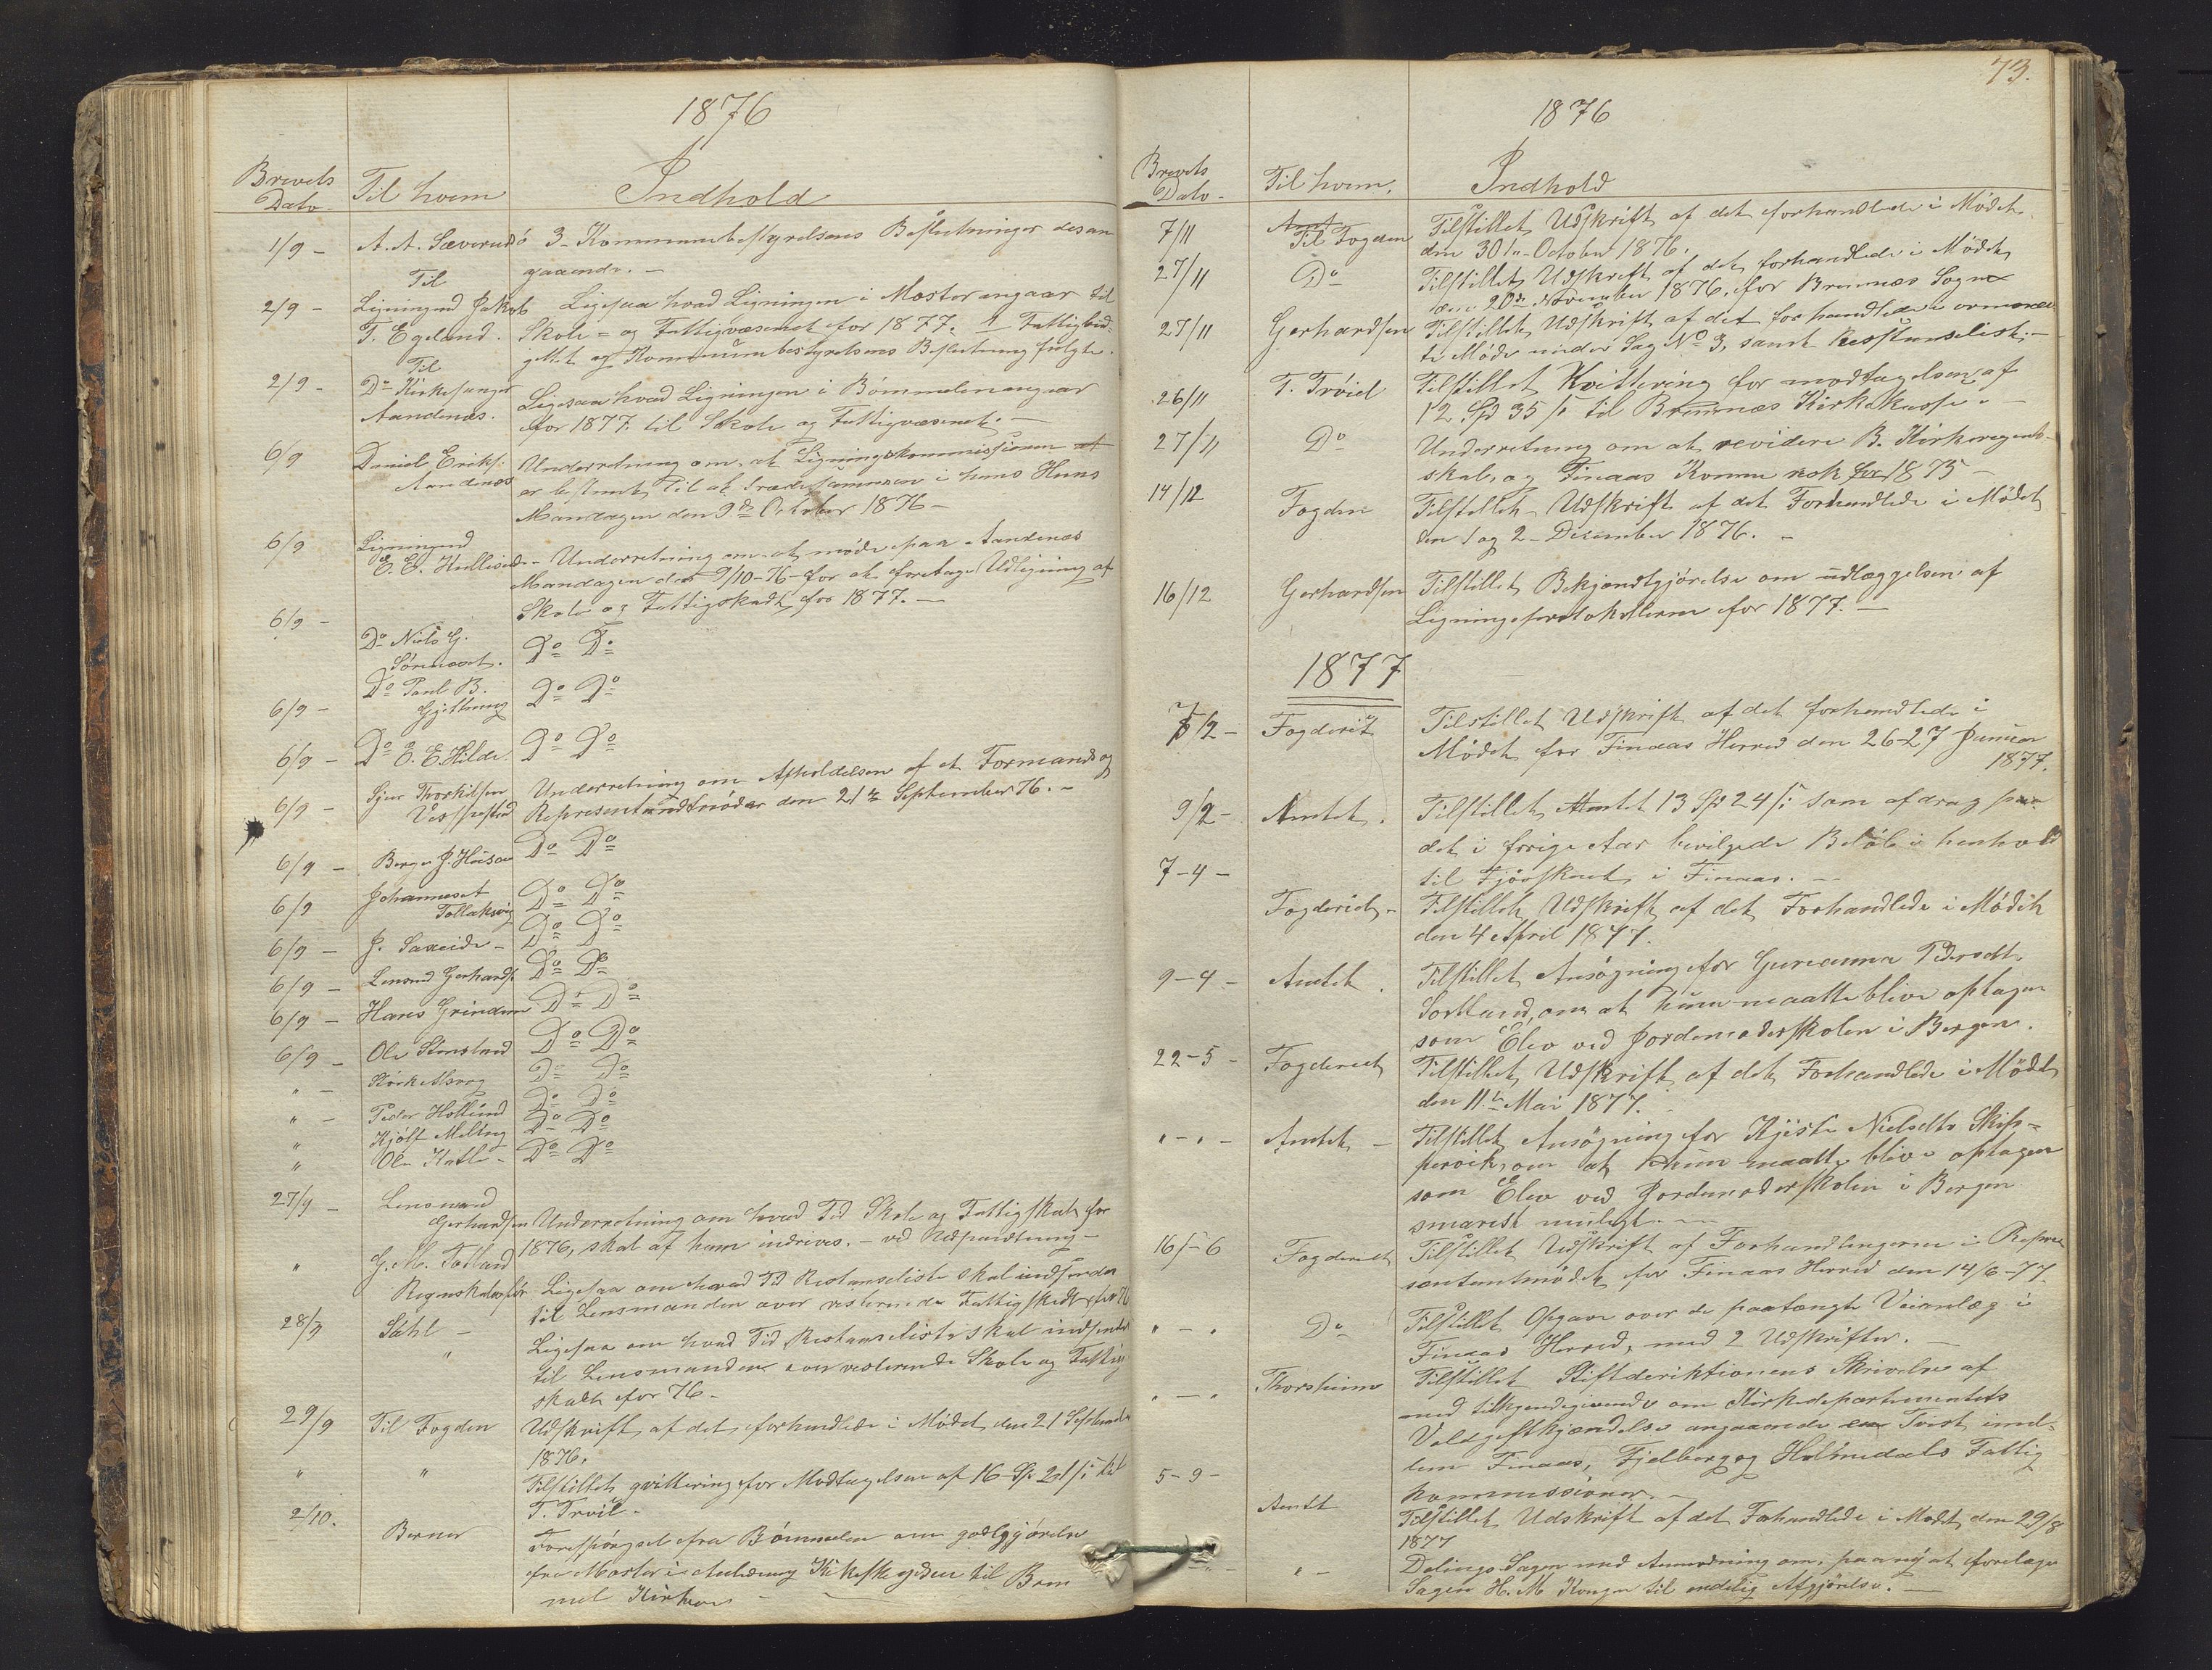 1876
Brevets
Dato
Til hvem
Indhold
1/9 - A. A. Sæverudsö 3 Kommunebestyrelsens Beslutninger desan
gaaende. -
2/9 - Til
Ligningmd Jakob
T. Egeland.
Ligesaa hvad Ligningen i Moster angaar til
Skole- og Fattigvæsenet for 1877. 1 Fattigbud-
gett og Kommunebestyrelsens Beslutning fulgte.
2/9 - Til
Do Kirkesanger
Aandenæs.
Ligesaa hvad Ligningen i Bömmelen angaar
for 1877 til Skole og Fattigvæsenet. -
6/9 Daniel Eriks.
Aandenæs
Underretning om, at Ligningskommissionen at
er bestemt til at træde sammen i hans Huus
Mandagen den 9de October 1876 -
6/9 Ligningmd
E. E. Hollisede - Underretning om at möde paa Aandenæs
Mandagen den 9/10-76 for at foretage Udligning af
Skole og Fattigskadt for 1877. -
6/9 - Do Niels G.
Sörenæset. Do Do
6/9 - Do Paul B.
Gjettung Do Do
6/9 - Do O. E. Hilde. Do Do
6/9 - Sjur Thorkilsen
Vespestad
Underretning om Afholdelsen af et Formands og
Representandtmöder den 21de September 76. -
6/9 - Berge J. Hiisøen Do Do
6/9 Johannes
Tollaksvig Do Do
6/9 - J. Saxeide - Do Do
6/9 - Lensmd Gerhards. Do Do
6/9 - Hans Grindem Do Do
6/9 - Ole Stensland Do Do
" - Do Do
" - Peder Hollund Do Do
" Kjölf Melling Do Do
" Ole Katle - Do Do
27/9 - Lensmand
Gerhardsen Underretning om hvad Tid Skole og Fattigskat for
1876, skal af ham indrives. - ved Udpandtning -
" G. M. Totland
Regnskabsför Ligesaa om hvad Tid Restanseliste skal indsendes
til Lensmanden over resterende Fattigskadt for 76
28/9 Stahl - " Ligesaa om hvad Tid Restanseliste skal indsendes
til Lensmanden over resterende Skole og Fattig
skadt for 76 -
29/9 Til Fogden Udskrift af det forhandlede i Mödet den 21 September
1876.
" " Tilstillet qvittering for Modtagelsen af 16 Sp 21 s til
T. Tröil -
2/10. Berner Forespörgsel fra Bömmelen om godtgjörelse
fra Moster i Anledning Kirkeskydsen til Bom
mel Kirken -
73.
1876
Brevets
Dato -
Til hvem,
Indhold
7/11 Amt
Til Fogden Tilstillet Udskrift af det forhandlede i Mödet
den 30te October 1876.
27/11 Do Tilstillet Udskrift af det forhandlede i Mödet
den 20de November 1876. for Bremnæs Sogn
27/11 Gerhardsen Tilstillet Udskrift af det forhandlede i ovennæv
te Möde under Sag No 3, samt Restanselist. -
26/11 T. Tröiel Tilstillet Kvittering for modtagelsen af
12 Spd 35 s til Bremnæs Kirkekasse. -
27/11 Do Underretning om at revidere B. Kirkeregnt-
skab, og Finaas Komm rsk for 1875 -
14/12 Fogden Tilstillet Udskrift af det Forhandlede i Mödet
den 1 og 2 Desember 1876. -
16/12 Gerhardsen Tilstillet Bekjendtgjörelse om udlæggelsen af
Ligningsprotokollerne for 1877. -
1877
5/2 - Fogderiet Tilstillet Udskrift af det forhandlede i
Mödet for Finaas Herred den 26-27 Januar
1877.
9/2 - Amtet. Tilstillet Amtet 13 Sp 24 s som afdrag paa
det i forige Aar bevilgede Belöb i henhold
til i Finaas. -
7-4 - Fogderiet - Tilstillet Udskrift af det Forhandlede i Mödet
den 4 April 1877.
9-4 - Amtet. Tilstillet Ansögning for Gurianna Pedersdt.
Sortland, om at hun maatte blive optagen
som Elev ved Jordemoderskolen i Bergen.
22-5 - Fogderiet Tilstillet Udskrift af det Forhandlede i Mödet
den 11te Mai 1877.
" - " - Amtet - Tilstillet Ansögning for Kjiste Nielsdtr Skip-
pervik, om at hun maatte blive optagen
som Elev ved Jordemoderskolen i Bergen
snarest muligt. -
16/-6 Fogderiet Tilstillet Udskrift af Forhandlingerne i Repre
sentantmödet for Finaas Herred den 14/6-77.
" - " Do Tilstillet Opgave over de paatængte Veianlæg i
Finaas Herred, med 2 Udskrifter. -
" - " Thorsheim Tilstillet Stiftderiktionens Skrivelse af
med tilkjendegivende om Kirkedepartementets
Voldgiftkjændelse angaaende en Tvist imel-
lem Finaas, Fjelberg og Holmedals Fattig
kommissioner. -
5-9 - Amtt Tilstillet Udskrift af det Forhandlede i Mödet den 29/8
1877
" - Delings Sagen med Anmodning om, paa ny at forelægge
Sagen H. M. Kongen til endelig Afgjörelse. -